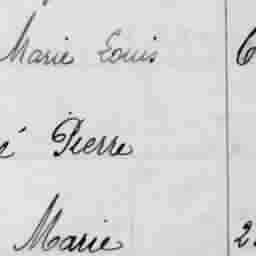 Marie Louis
é Pierre
Marie 2